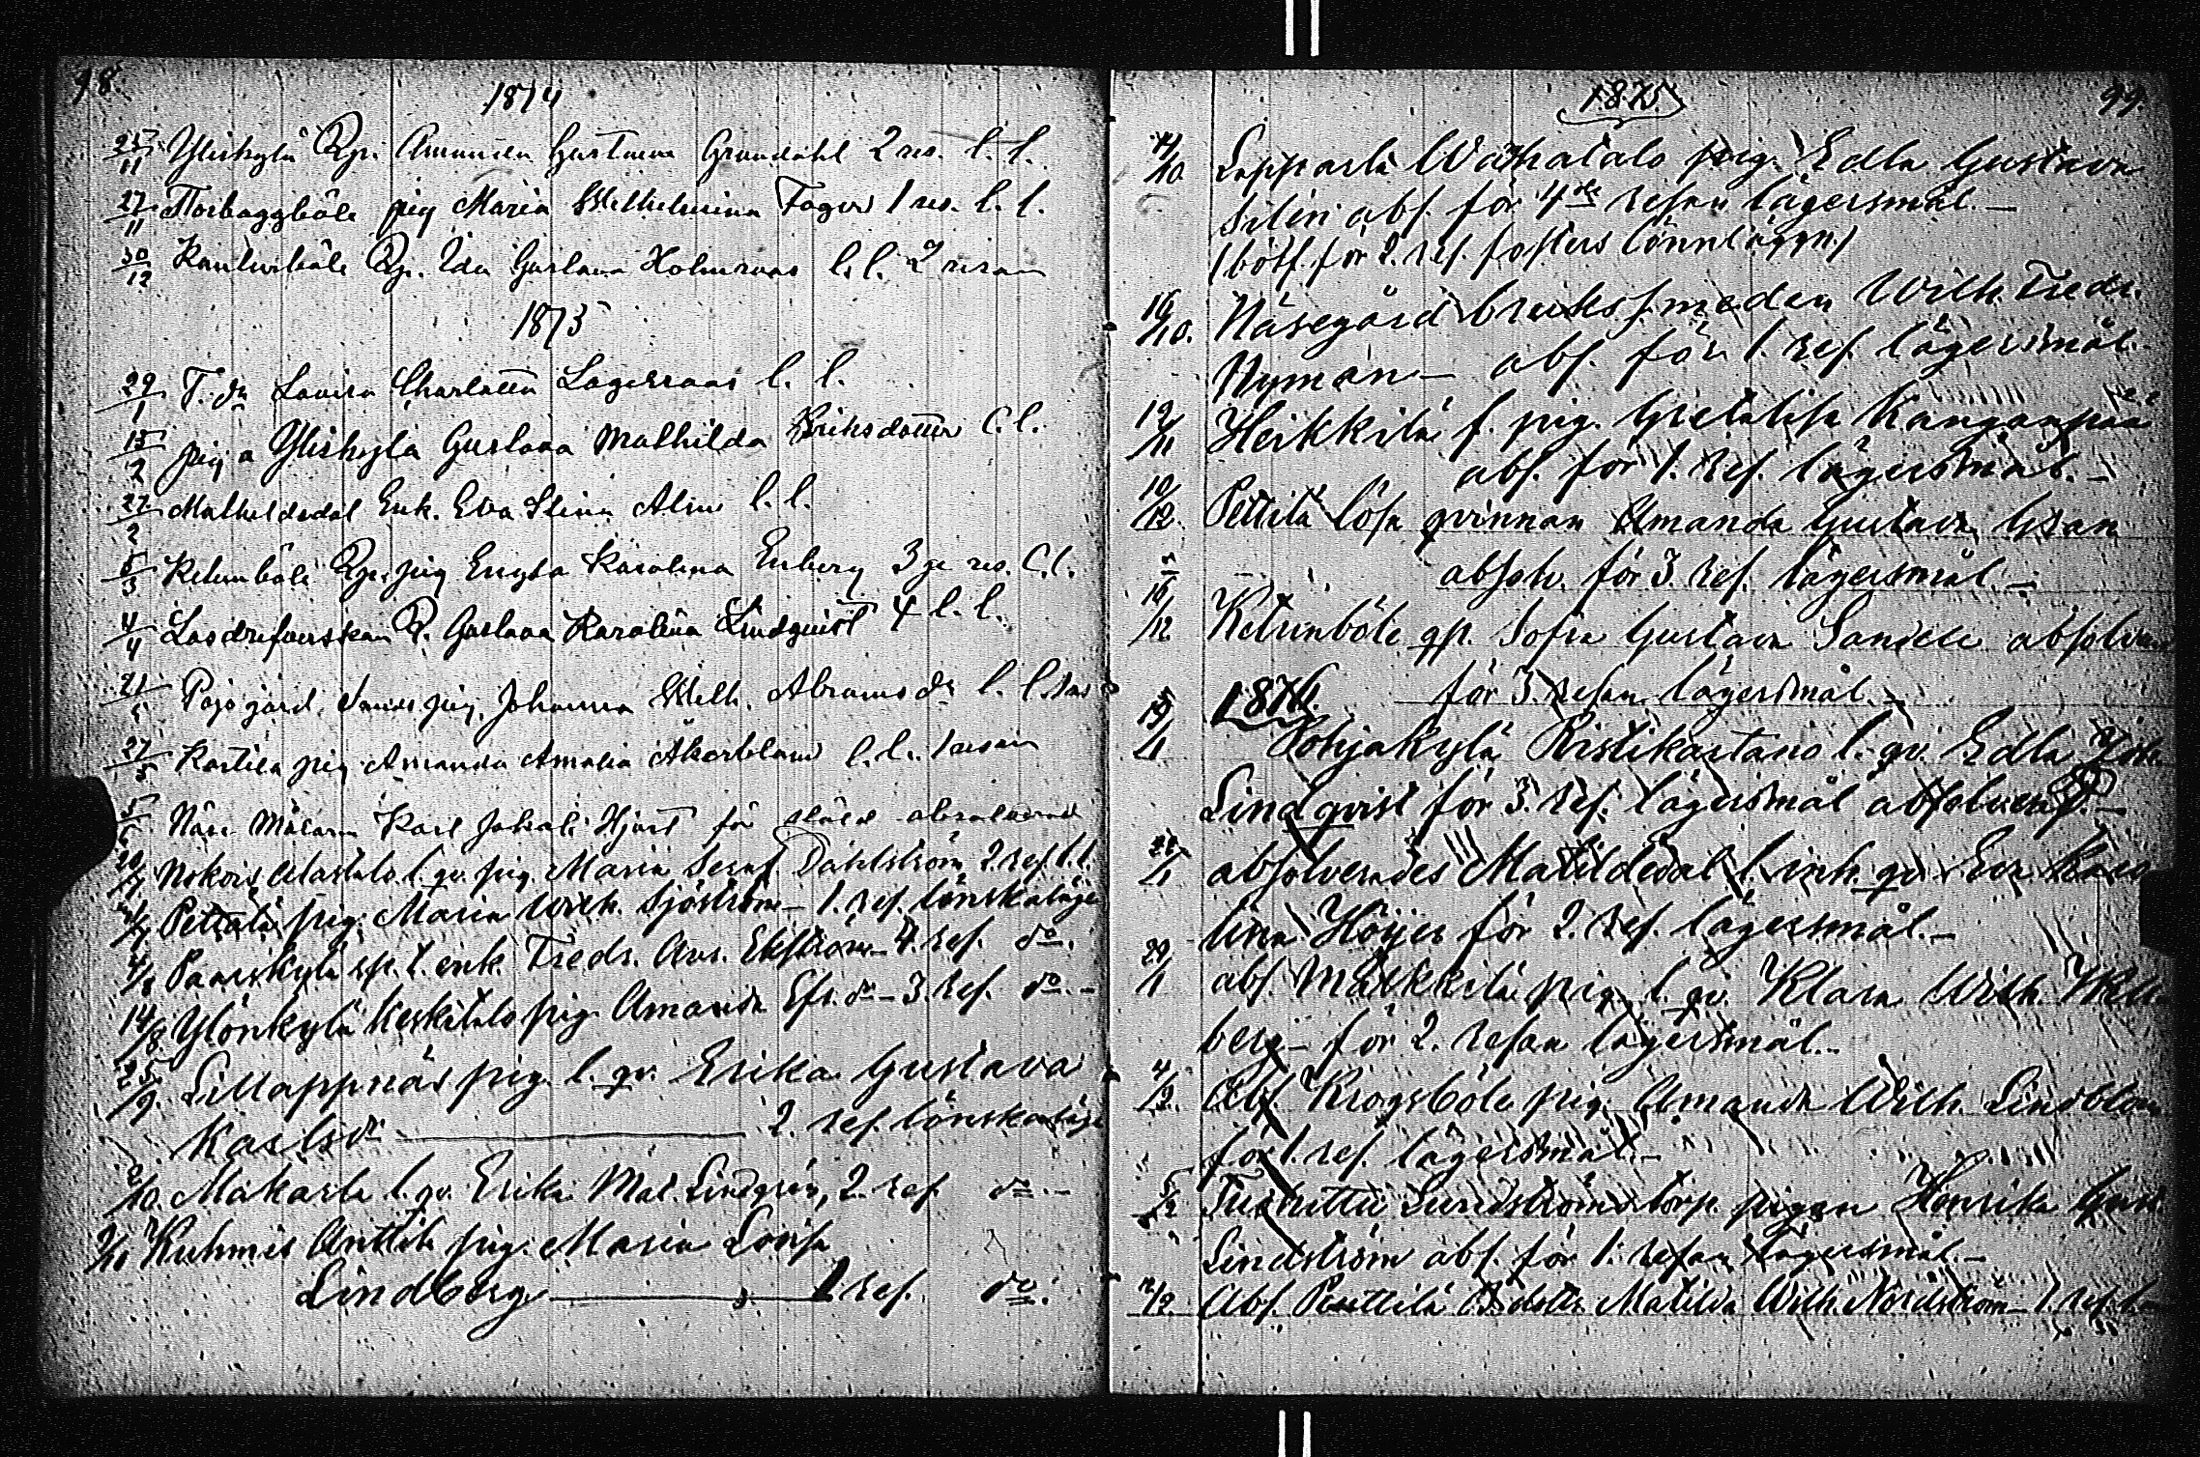 98.
1874
25/11 Yliskylä Qp. Amanda Gustava Grundahl 2 res. l. l.
27/11 Norbaggböle pig Maria Wilhelmina Fager 1 res. l. l.
30/12 Qp. Ida Gustava Holmroos l. l. 2 resan
1875
29/1 T. dr Lovisa Charlotta Lagerroos l. l.
15/2 pig a Yliskylä Gustava Mathilda Eriksdotter l. l.
22/2 Mathildedal Enk. Eva Stina Alin l. l.
5/3 Ketunböle Qp. pig Karolina Enberg 3je res. l. l.
4/4 Q. Gustava Karolina Lindqvist 4 l. l.
21/5 Pojogård pig. Johanna Wilh. Abramsdr l. l.
27/5 Kartila pig Amanda Amalia Åkerblom l. l. 1 resan
5/6 Näse Målaren Karl Jakob Hjort för stöld absolverad
20/7 Nokois Alastalo l. qv. pig. Maria Seraf. Dahlström 2. res. l. l.
Pettilä pig. Maria Wilh. Sjöström – 1. res. lönskaläge
4/8 Paarskylä sp. l. enk. Fredr. Aur. Ekström – 4. res. do.
14/8 Ylönkylä Keskitalo pig. Amanda Efr. dr – 3. res. do. –
25/9. Lillappnäs pig. l. qv. Erika Gustava
Karlsdr — 2. res. lönskaläge
2/10. Makarla l. qv. Erika Mat. Lindgrén, 2. res. do. –
9/10 Kuhmis Anttila pig. Maria Lovisa
Lindberg — 1 res. do.
1875
99.
4/10. Lapparla Wähätalo pig. Edla Gustava
Silén abs. för 4de resan lägersmål. –
(böt. för 2. res. fosters lönnläggn.)
16/10. Näsegård bruks smeden Wilh. Fredr.
Nyman – abs. för 1. res. lägersmål. –
12/11 Heikkilä f. pig. Greta Lisa Kanganpää
abs. för 1. res. lägersmål. –
10/12. Pettilä lösa qvinnan Amanda Gustava Gran
absolv. för 3. res. lägersmål. –
16/12 Ketunböle qp. Sofia Gustava Sandell absolv.
för 3. resan lägersmål. –
1876.
15/1 Pohjakylä Ristikartano l. qv. Edla Joh.
Lindqvist för 3. res. lägersmål absolverad. –
22/1 absolverades Matildedal l. inh. qv. Eva Karo
lina Höijer för 2. res. lägersmål. –
29/1 abs. Märkkilä pig. l. qv. Klara Wilh.
berg – för 2. resan lägersmål. –
4/2. Abs. Krogsböle pig. Amanda Wilh. Lindblom
för 1. res. lägersmål. –
5/2 Lundströms torp. pigan Henrika Gust.
Lindström abs. för 1. resan lägersmål –
12/2 Abs. Penttilä Matilda Wilh. Nordström – 1. res. l.